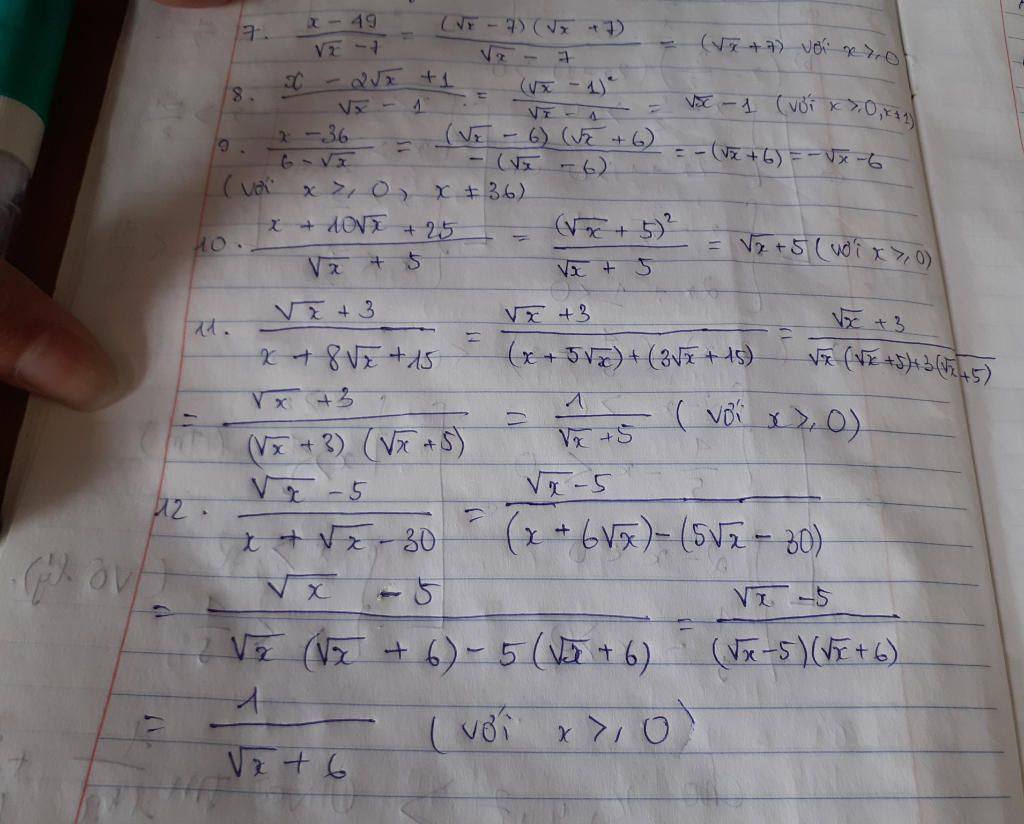 7. (x - 49)/(√x - 7) = ((√x - 7)(√x + 7))/(√x - 7) = (√x + 7) với x ≥ 0
8. (x - 2√x + 1)/(√x - 1) = (√x - 1)²/(√x - 1) = √x - 1 (với x ≥ 0, x ≠ 1)
9. (x - 36)/(6 - √x) = ((√x - 6)(√x + 6))/(-(√x - 6)) = -(√x + 6) = -√x - 6
(với x ≥ 0, x ≠ 36)
10. (x + 10√x + 25)/(√x + 5) = (√x + 5)²/(√x + 5) = √x + 5 (với x ≥ 0)
11. (√x + 3)/(x + 8√x + 15) = (√x + 3)/((x + 5√x) + (3√x + 15)) = (√x + 3)/(√x(√x + 5) + 3(√x + 5))
= (√x + 3)/((√x + 3)(√x + 5)) = 1/(√x + 5) (với x ≥ 0)
12. (√x - 5)/(x + √x - 30) = (√x - 5)/((x + 6√x) - (5√x - 30))
= (√x - 5)/(√x(√x + 6) - 5(√x + 6)) = (√x - 5)/((√x - 5)(√x + 6))
= 1/(√x + 6) (với x ≥ 0)